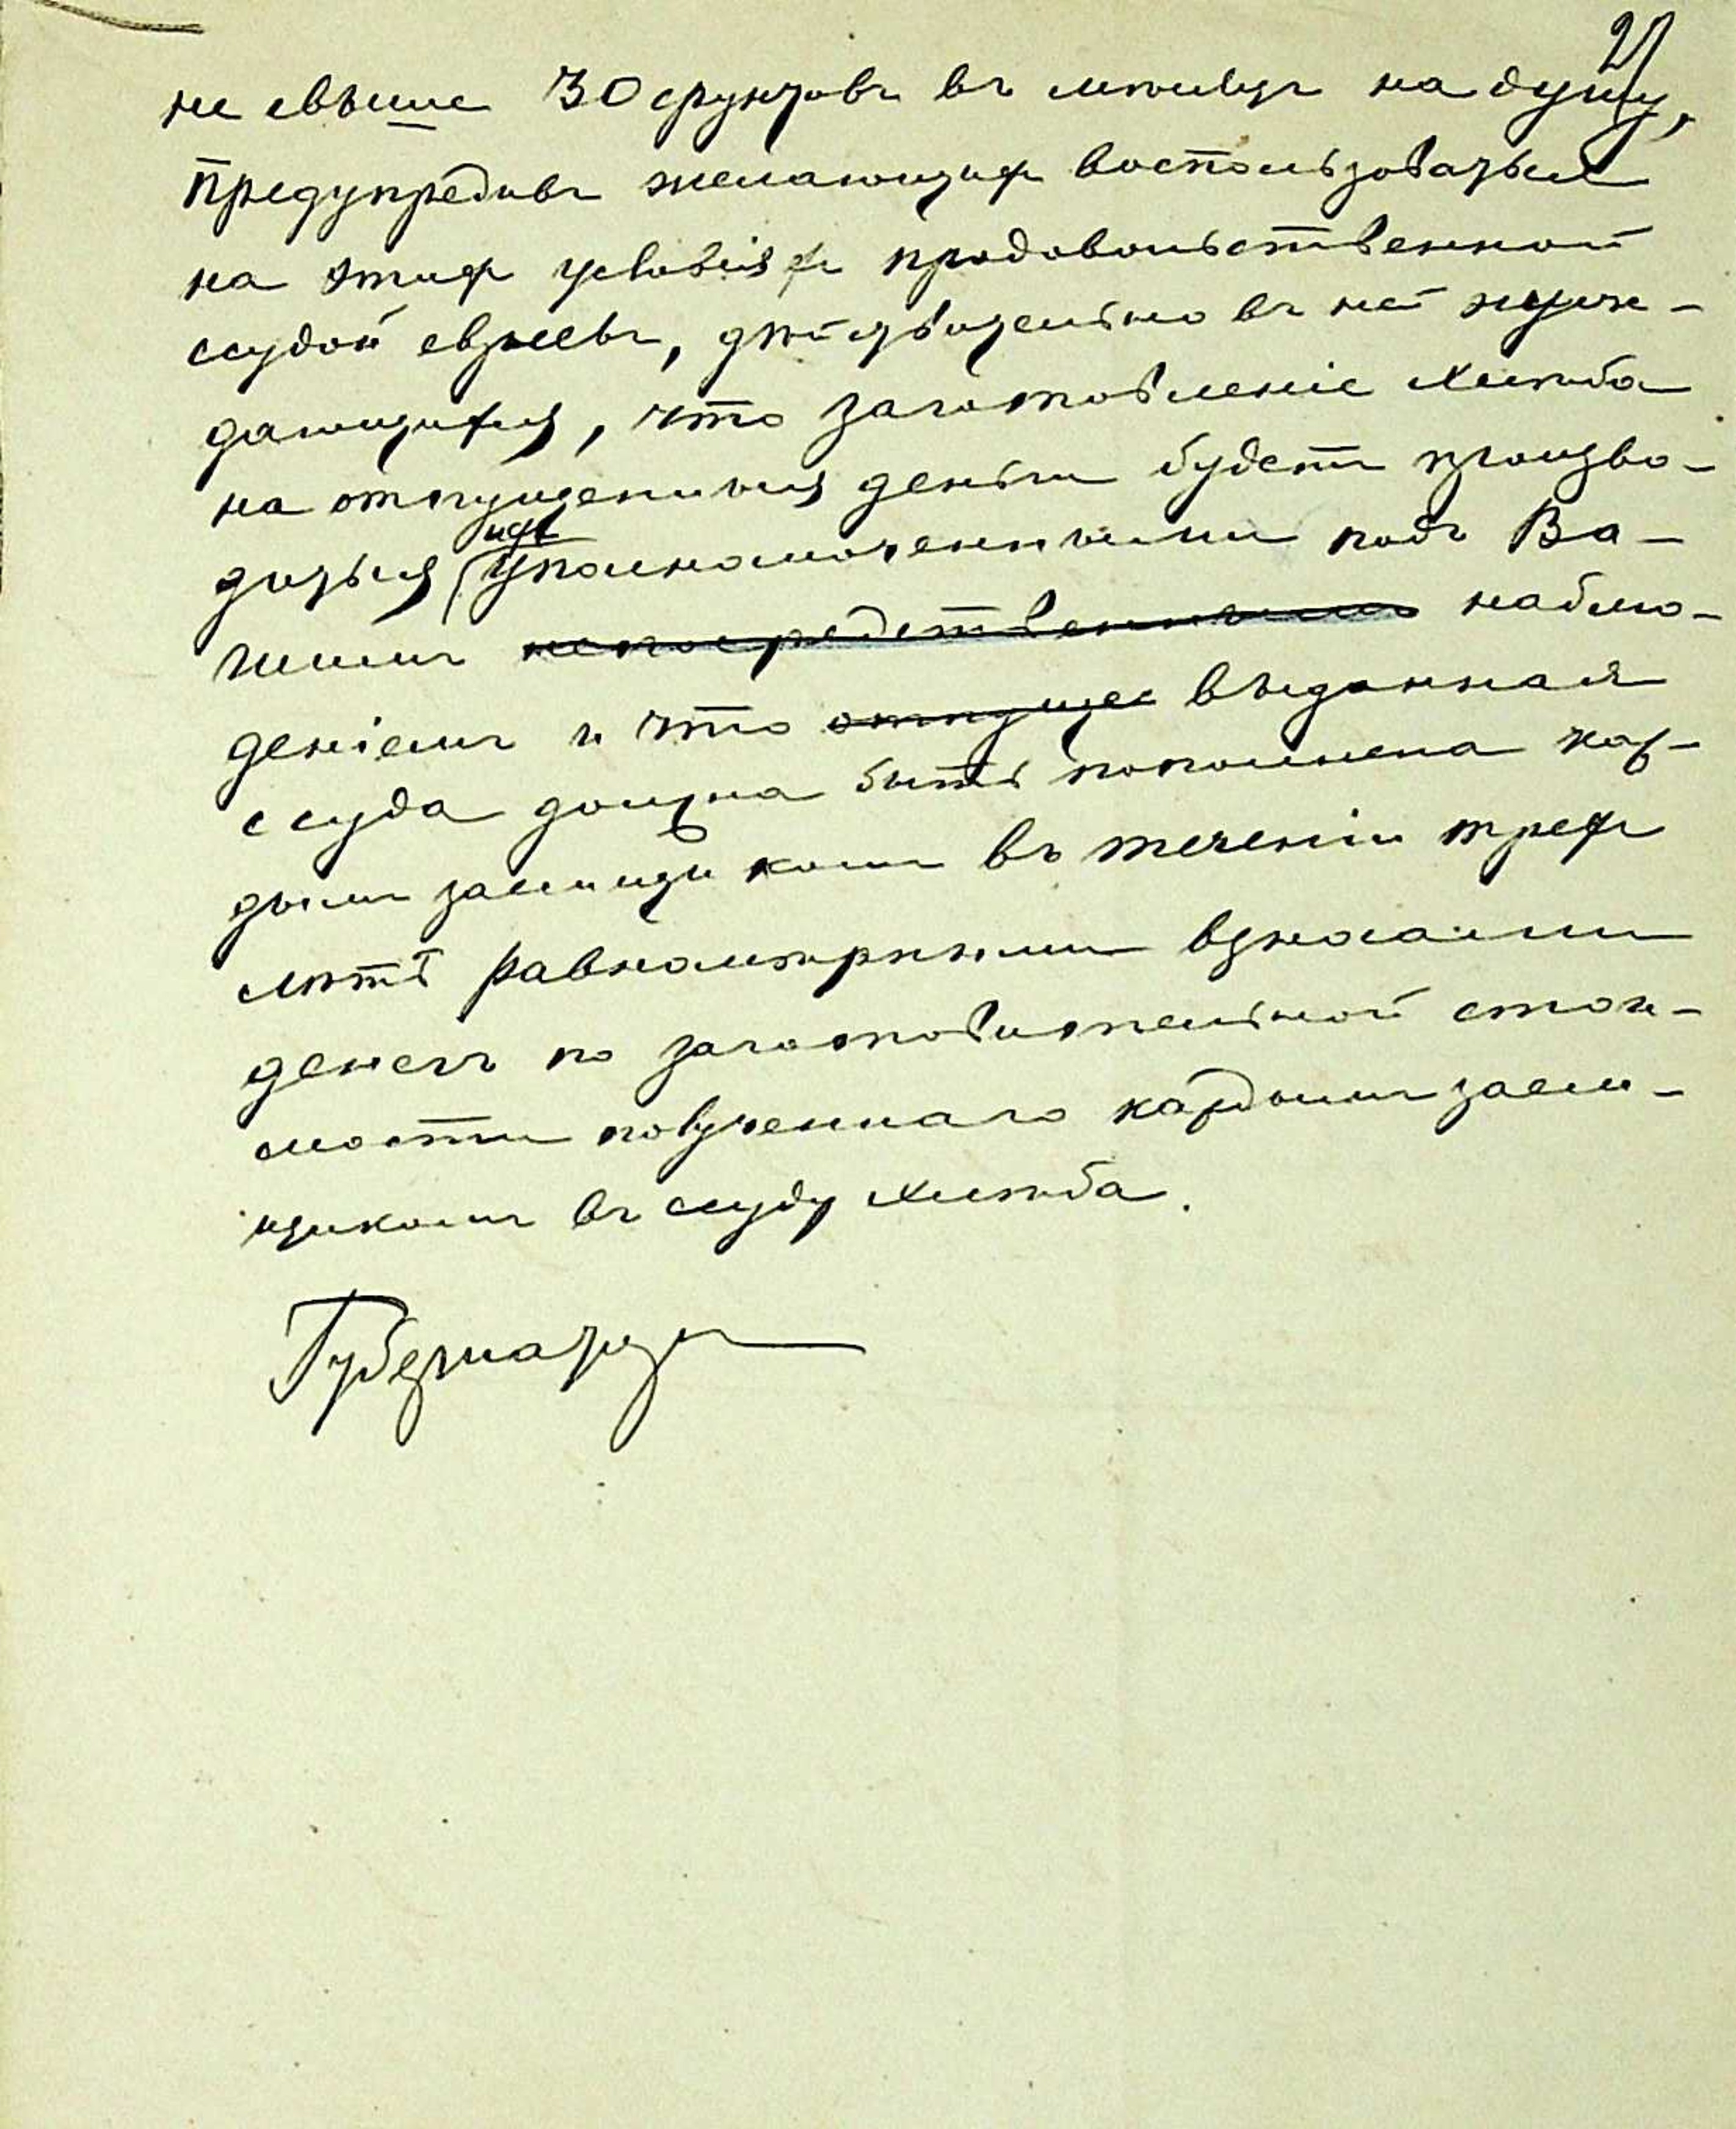 21
не свыше 30 фунтовъ въ мѣсяцъ на душу,
предупредивъ желающихъ воспользоваться
на этихъ условіяхъ продовольственной
ссудой евреевъ, дѣйствительно въ ней нуж-
дающихся, что заготовленіе хлѣба
на отпущенныя деньги будетъ произво-
диться ихъ уполномоченными подъ Ва-
шимъ непосредственнымъ наблю-
деніемъ и что отпуще выданная
ссуда должна быть пополнена каж-
дымъ заемщикомъ въ теченіи трехъ
лѣтъ равномѣрными взносами
денегъ по заготовительной стои-
мости полученнаго каждымъ заем-
щикомъ въ ссуду хлѣба.
Губернаторъ